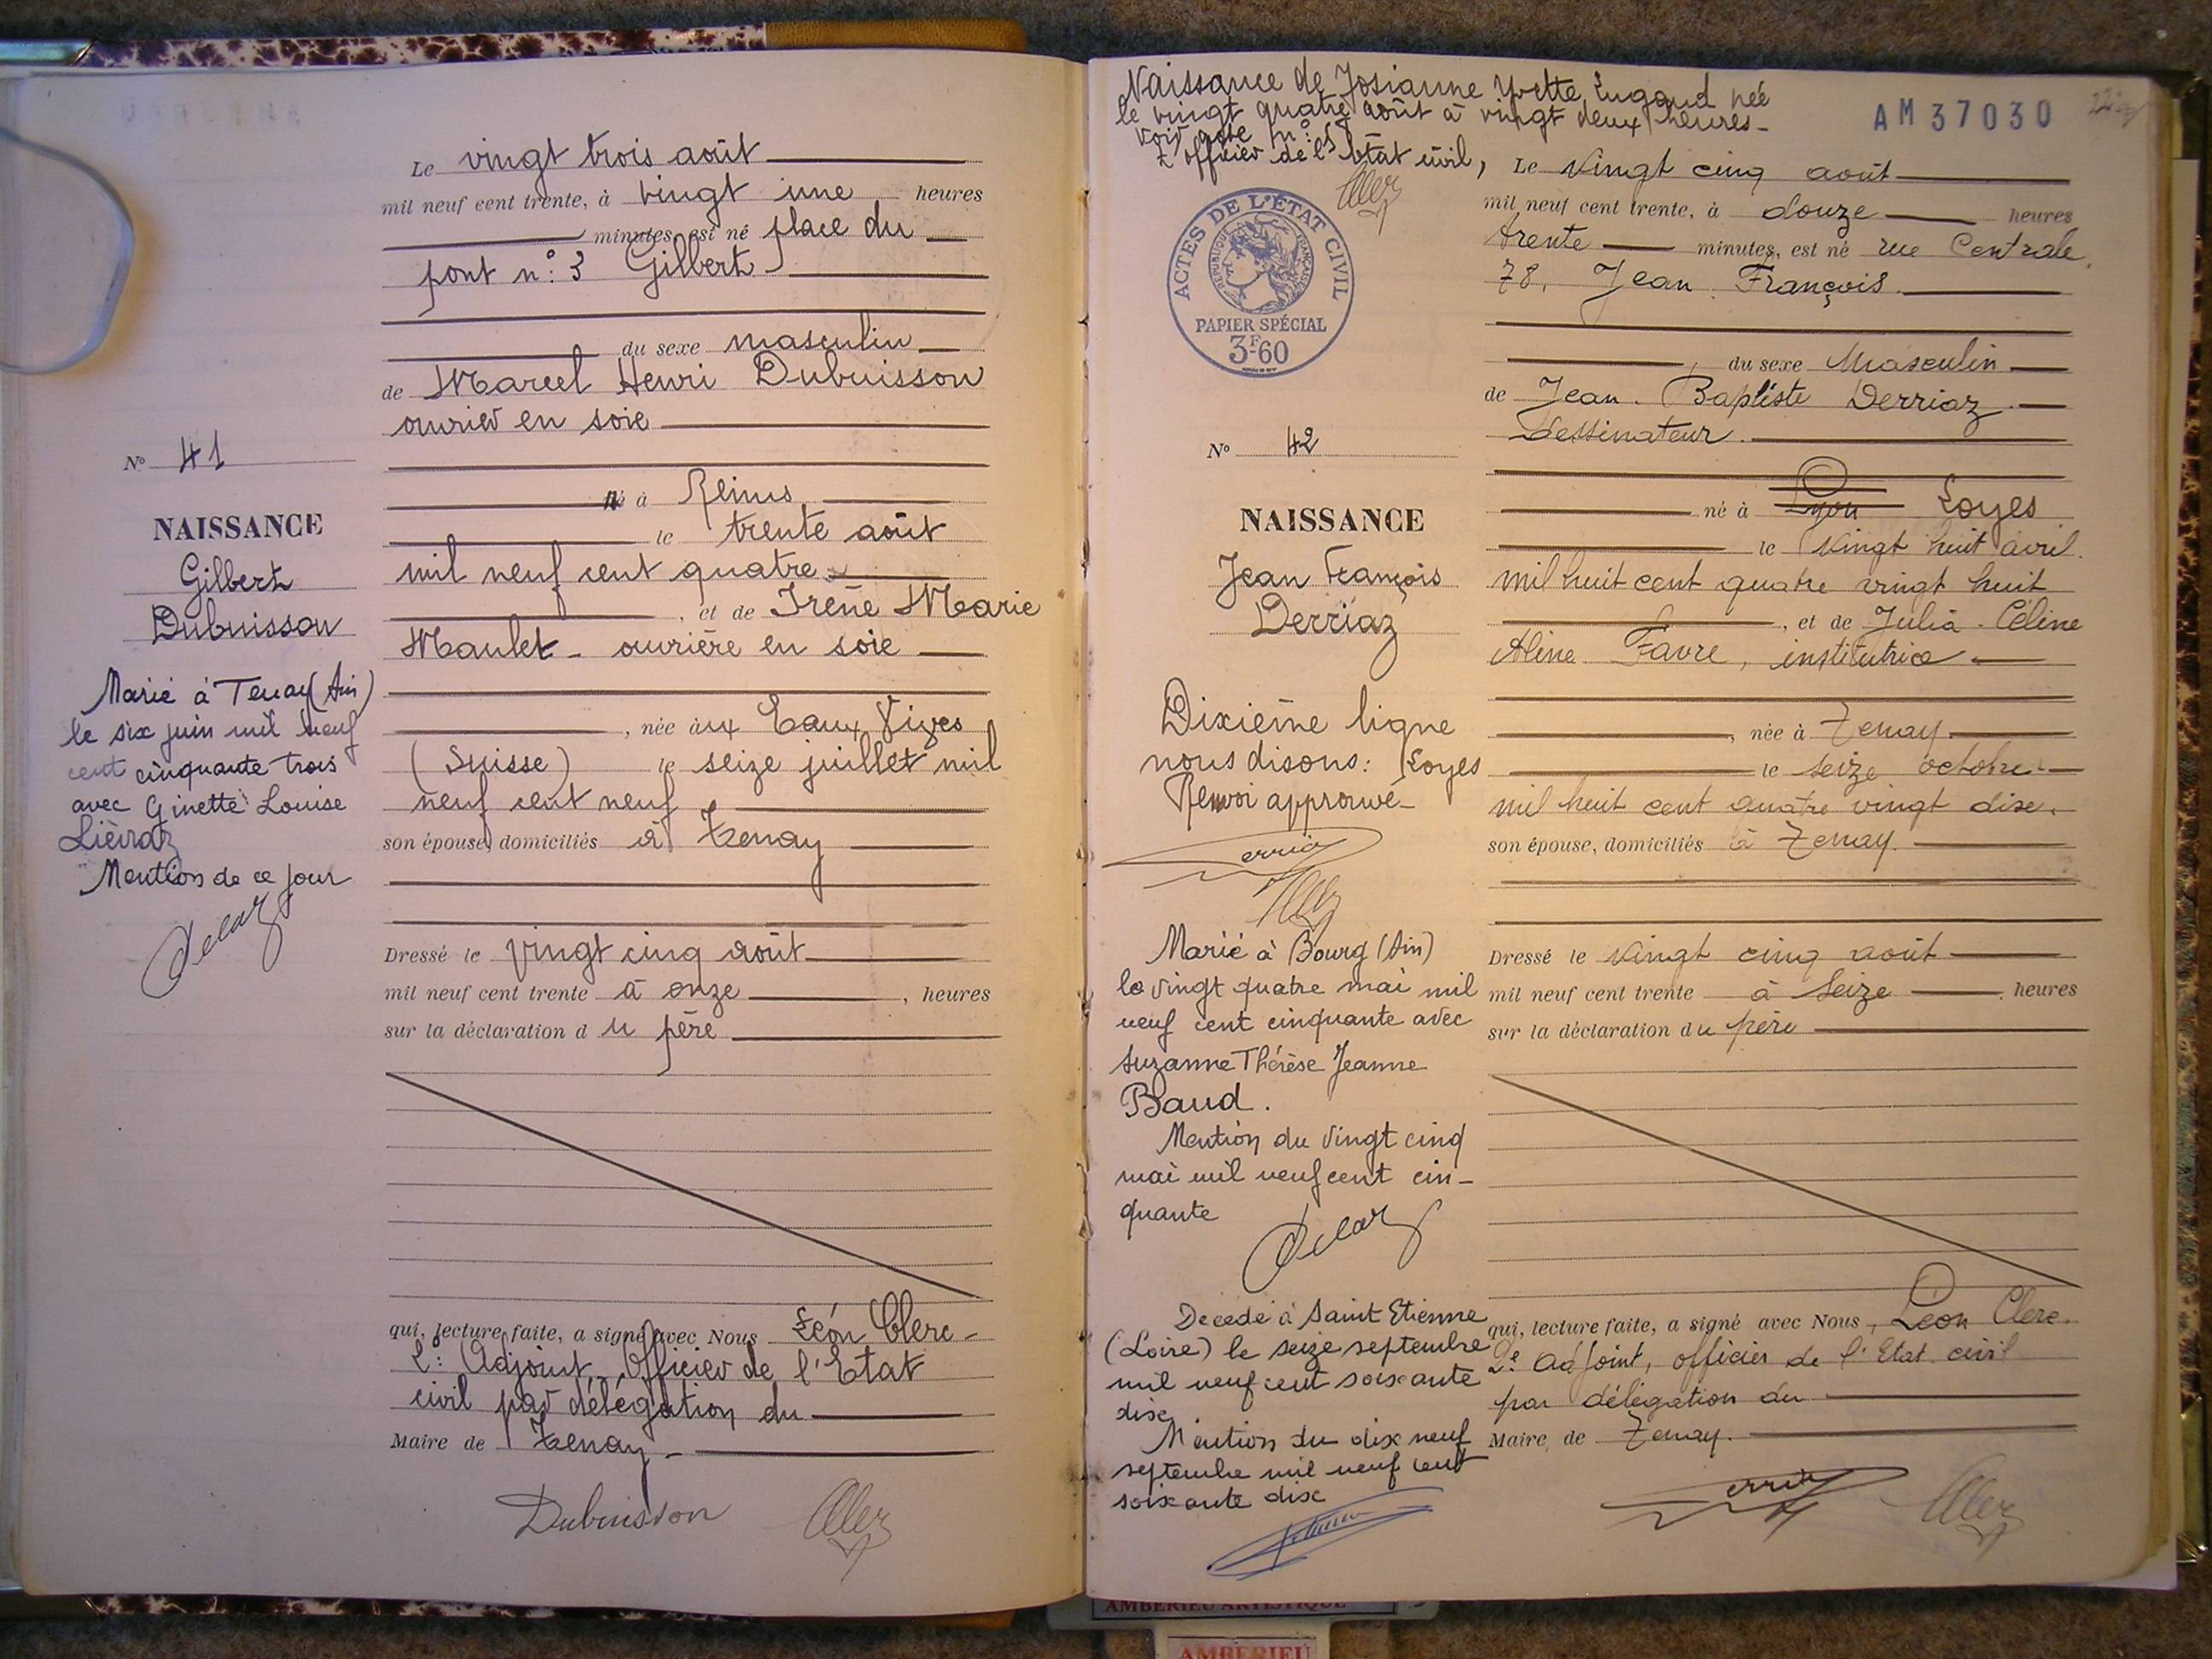 Le vingt trois août
mil neuf cent trente, à vingt une heures
minutes, est né place du
pont n°: 3 Gilbert
du sexe masculin
de Marcel Henri Dubuisson
ouvrier en soie
né à Reims
le trente août
mil neuf cent quatre
, et de Irène Marie
Maulet - ouvrière en soie
, née aux Eaux Vives
(Suisse) le seize juillet mil
neuf cent neuf
son épouse, domiciliés à Tenay
Dressé le vingt cinq août
mil neuf cent trente à onze , heures
sur la déclaration du père
qui, lecture faite, a signé avec Nous Léon Clerc -
2e Adjoint, Officier de l'Etat
civil par délégation du
Maire de Tenay -
Dubuisson
N° 41
NAISSANCE
Gilbert
Dubuisson
Marié à Tenay (Ain)
le six juin mil neuf
cent cinquante trois
avec Ginette Louise
Liévraz
Mention de ce jour
Naissance de Josianne Yvette Lugand née
le vingt quatre août à vingt deux heures -
voir acte n°:
L'officier de l'état civil,
AM 37030
ACTES DE L'ÉTAT CIVIL
RÉPUBLIQUE FRANÇAISE
PAPIER SPÉCIAL
3F60
Le vingt cinq août
mil neuf cent trente, à douze heures
trente minutes, est né rue Centrale,
78, Jean François
, du sexe Masculin
de Jean-Baptiste Derriaz
dessinateur.
né à Lyon Loyes
le vingt huit avril
mil huit cent quatre vingt huit
, et de Julia-Céline
Aline Favre, institutrice
, née à Tenay
le seize octobre
mil huit cent quatre vingt dix.
son épouse, domiciliés à Tenay.
Dressé le vingt cinq août
mil neuf cent trente à seize heures
sur la déclaration du père
qui, lecture faite, a signé avec Nous, Léon Clerc.
2e Adjoint, officier de l'Etat civil
par délégation du
Maire de Tenay.
N° 42
NAISSANCE
Jean François
Derriaz
Dixième ligne
nous disons: Loyes
Renvoi approuvé -
Marié à Bourg (Ain)
le vingt quatre mai mil
neuf cent cinquante avec
Suzanne Thérèse Jeanne
Baud.
Mention du vingt cinq
mai mil neuf cent cin-
quante
Décédé à Saint Etienne
(Loire) le seize septembre
mil neuf cent soixante
dix
Mention du dix neuf
septembre mil neuf cent
soixante dix
AMBERIEU ARTISTIQUE
AMBERIEU